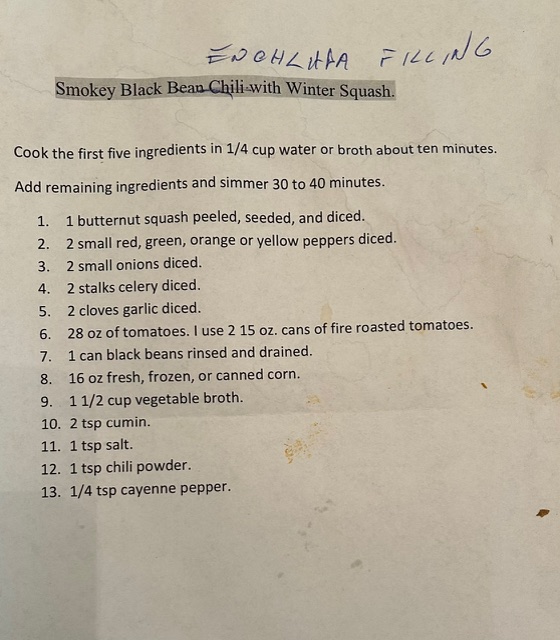 ENCHLHDA FILLING
Smokey Black Bean Chili with Winter Squash.
Cook the first five ingredients in 1/4 cup water or broth about ten minutes.
Add remaining ingredients and simmer 30 to 40 minutes.
1. 1 butternut squash peeled, seeded, and diced.
2. 2 small red, green, orange or yellow peppers diced.
3. 2 small onions diced.
4. 2 stalks celery diced.
5. 2 cloves garlic diced.
6. 28 oz of tomatoes. I use 2 15 oz. cans of fire roasted tomatoes.
7. 1 can black beans rinsed and drained.
8. 16 oz fresh, frozen, or canned corn.
9. 1 1/2 cup vegetable broth.
10. 2 tsp cumin.
11. 1 tsp salt.
12. 1 tsp chili powder.
13. 1/4 tsp cayenne pepper.